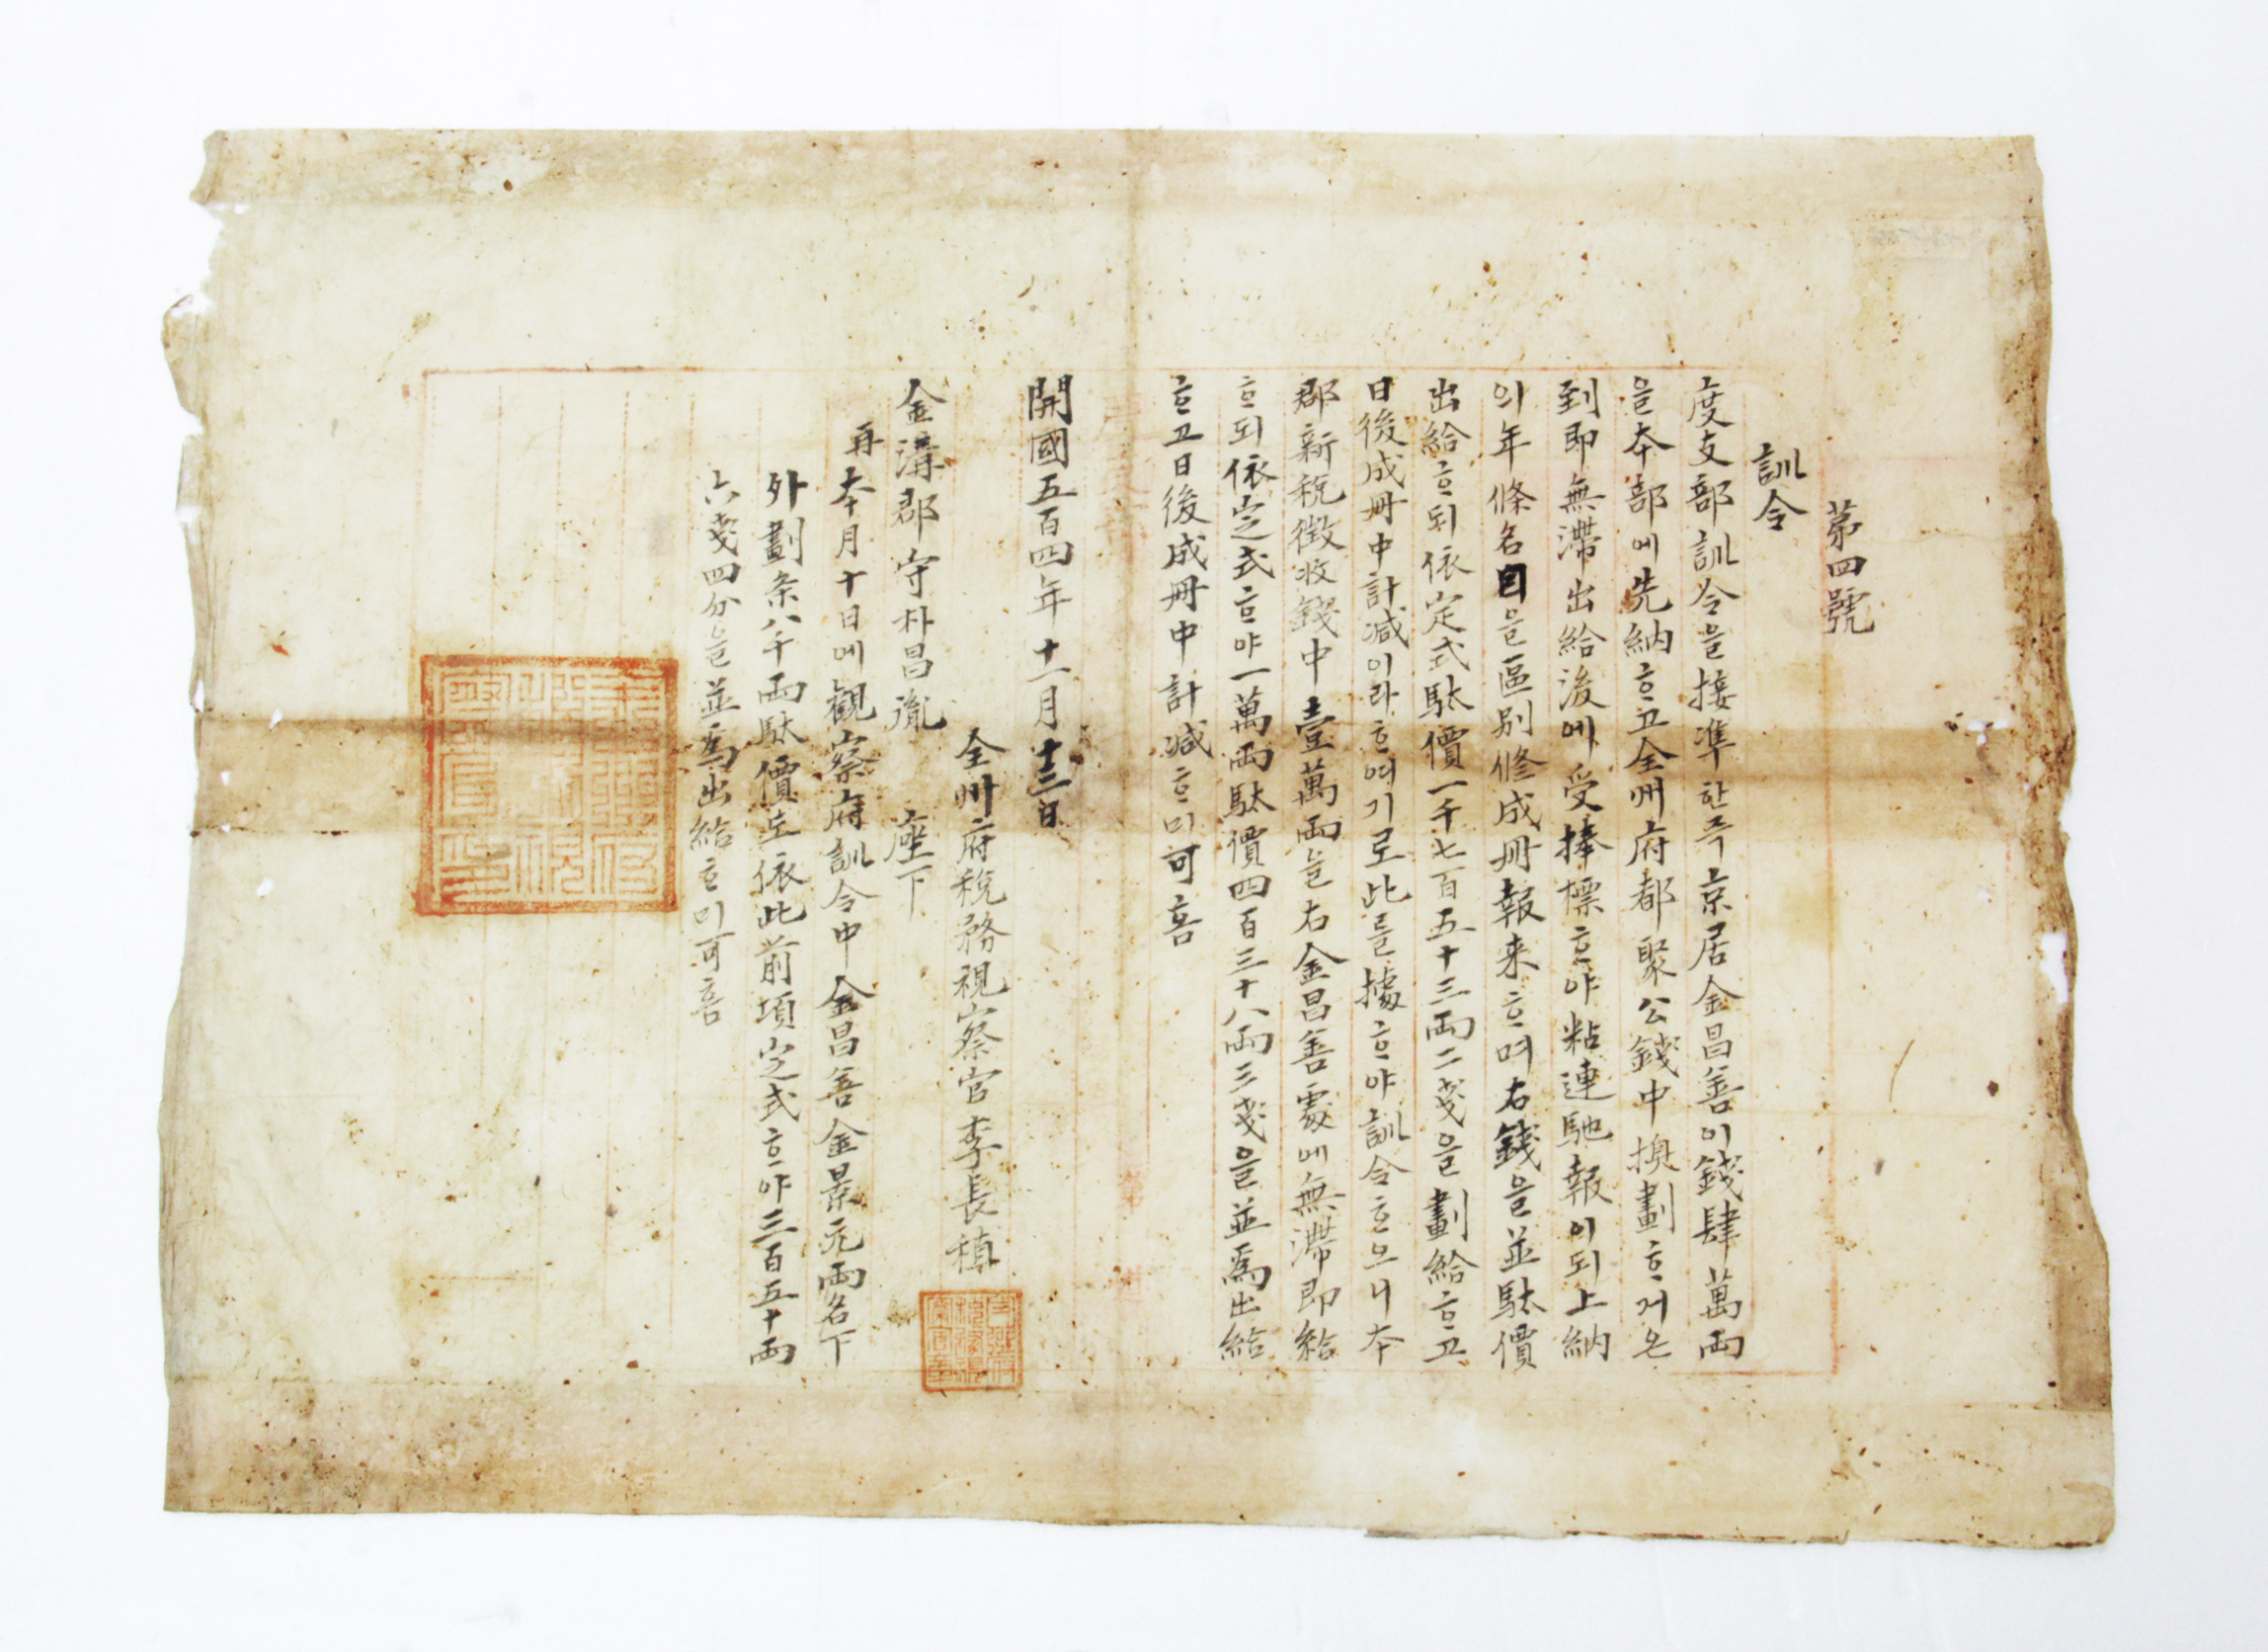 第四號
訓令
度支部訓令을接準한즉京居金昌善이錢肆萬兩
을本部에先納ᄒᆞ고全州府都聚公錢中換劃ᄒᆞ거온
到卽無滯出給後에受捧標ᄒᆞ야粘連馳報이되上納
의年條名目을區別修成冊報來ᄒᆞ며右錢을並駄價
出給ᄒᆞ되依定式駄價一千七百五十三兩二戔을劃給ᄒᆞ고
日後成冊中計減이라ᄒᆞ여기로此를據ᄒᆞ야訓令ᄒᆞ오니本
郡新稅徵收錢中壹萬兩을右金昌善處에無滯卽給
ᄒᆞ되依定式ᄒᆞ야一萬兩駄價四百三十八兩三戔을並爲出給
ᄒᆞ고日後成冊中計減ᄒᆞ미可홈
開國五百四年十一月十三日
全州府稅務視察官李長稙
金溝郡守朴昌胤 座下
再本月十日에觀察府訓令中金昌善金景元兩名下
外劃条八千兩駄價도依此前項定式ᄒᆞ야三百五十兩
六戔四分을並爲出給ᄒᆞ미可홈